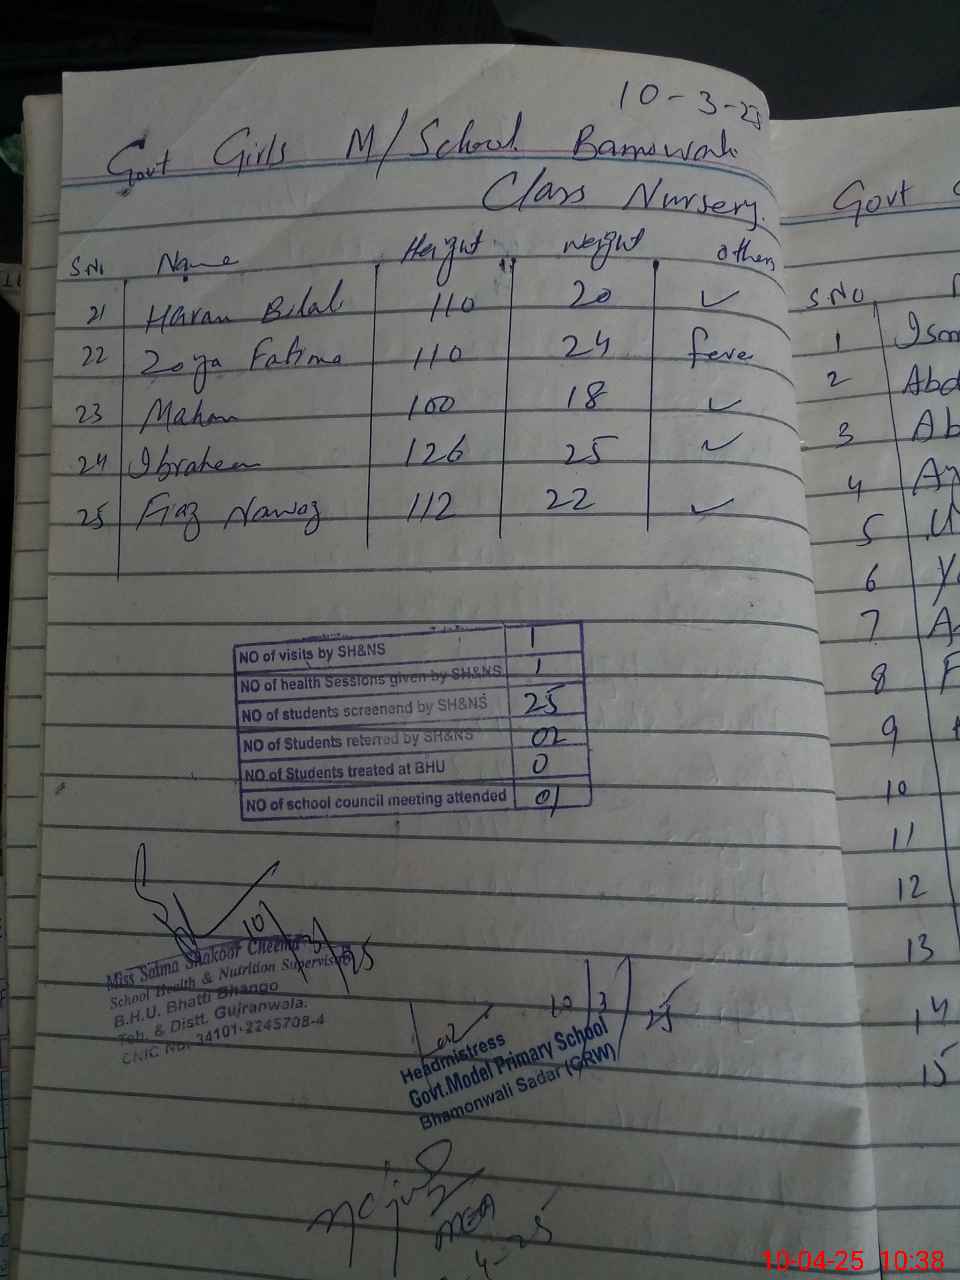 10-3-25
Govt Girls M/School Bamowali
Class Nursery.
S.No Name Height Weight others
21 Haram Bilal 110 20 ✓
22 Zoya Fatima 110 24 fever
23 Mahan 100 18 ✓
24 Ibraheem 126 25 ✓
25 Fiaz Nawaz 112 22 ✓
NO of visits by SH&NS 1
NO of health Sessions given by SH&NS 1
NO of students screenend by SH&NS 25
NO of Students reterred by SH&NS 02
NO of Students treated at BHU 0
NO of school council meeting attended 01
10/3/25
Miss Salma Shakoor Cheema
School Health & Nutrition Supervisor
B.H.U. Bhatti Bhango
Teh. & Distt. Gujranwala.
CNIC No. 34101-2245708-4
10/3/25
Headmistress
Govt.Model Primary School
Bhamonwali Sadar (GRW)
MEA
4-25
Govt
S.NO
1
2 Abd
3 Ab
4
5
6
7
8
9
10
11
12
13
14
15
10-04-25 10:38